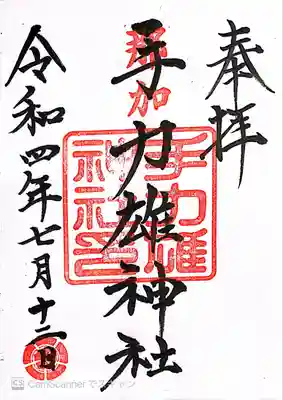 奉拝
那加
手力雄神社
手力雄
神社印
令和四年七月十二日
CS CamScanner でスキャン